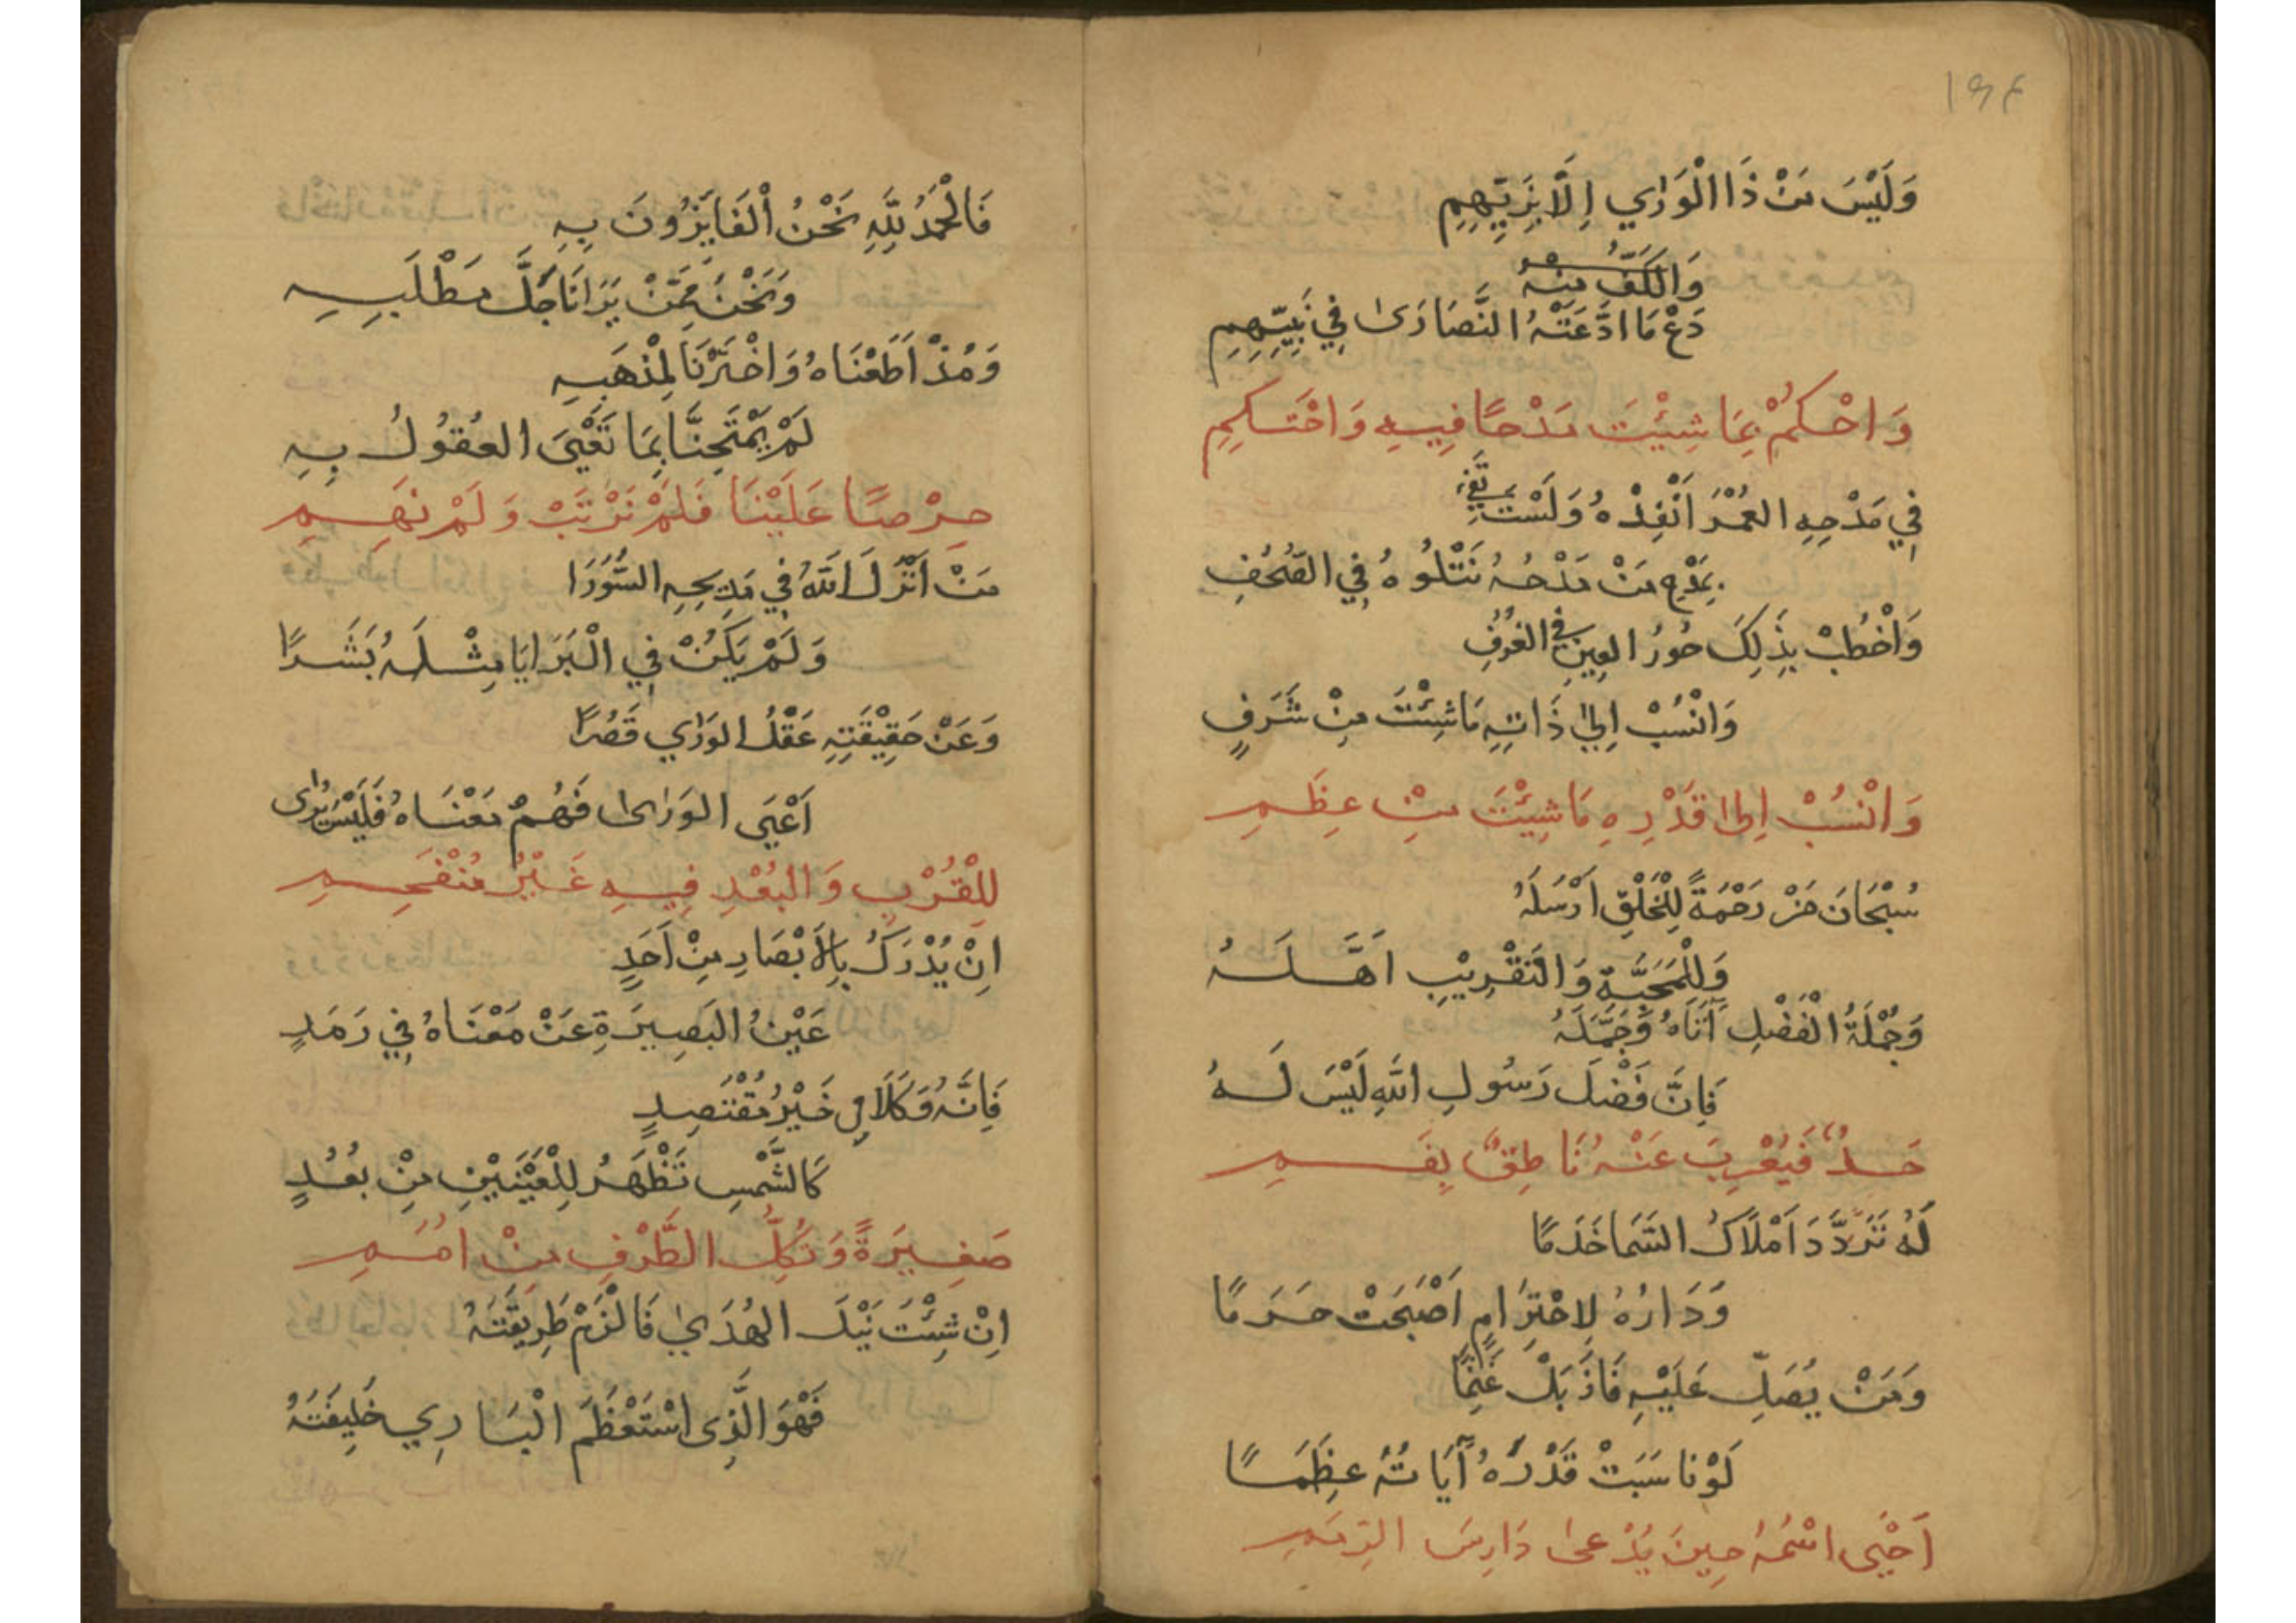 ١٩٤
وَلَيْسَ مَنْ ذَا الْوَرٰي اِلَّا بِزَيِّهِمِ
وَالكَفُّ مِنْهُ
دَعْ مَا ادَّعَتْهُ النَّصَارَىٰ فِي نَبِيِّهِمِ
وَاحْكُمْ بِمَا شِيْتَ مَدْحًا فِيهِ وَاحْتَكِمِ
فِي مَدْحِهِ العُمْرَ اَنْفِذْهُ وَلَسْتَ تَفِي
بِمَدْحِ مَنْ مَدْحُهُ نَتْلُوهُ فِي الصُّحُفِ
وَاخْطُبْ بِذٰلِكَ حُورُ العِينِ فِي الغُرُفِ
وَانْسُبْ اِلىٰ ذَاتِهِ مَا شِئْتَ مِنْ شَرَفٍ
وَانْسُبْ اِلىٰ قَدْرِهِ مَا شِيْتَ مِنْ عِظَمِ
سُبْحَانَ مَنْ رَحْمَةً لِلْخَلْقِ اَرْسَلَهُ
وَلِلْمَحَبَّةِ وَالتَّقْرِيْبِ اَهَّلَهُ
وَجُمْلَةُ الْفَضْلِ آتَاهُ وَجَمَّلَهُ
فَاِنَّ فَضْلَ رَسُولِ اللهِ لَيْسَ لَهُ
حَدٌّ فَيُعْرِبَ عَنْهُ نَاطِقٌ بِفَمِ
لَهُ تَرَدَّدَ اَمْلَاكُ السَّمَا خَدَمًا
وَدَارُهُ لِاحْتِرَامٍ اَصْبَحَتْ حَرَمًا
وَمَنْ يُصَلِّ عَلَيْهِ فَازَ بَلْ غَنِمًا
لَوْ نَاسَبَتْ قَدْرَهُ آيَاتُهُ عِظَمًا
اَحْيَى اسْمُهُ حِينَ يُدْعىٰ دَارِسَ الرِّمَمِ
فَالْحَمْدُ لِلّٰهِ نَحْنُ الْفَايِزُونَ بِهِ
وَنَحْنُ مِمَّنْ يَرَانَا جُلَّ مَطْلَبِهِ
وَمُذْ اَطَعْنَاهُ وَاخْتَرْنَا لِمَذْهَبِهِ
لَمْ يَمْتَحِنَّا بِمَا تَعْيَىٰ العُقُولُ بِهِ
حِرْصًا عَلَيْنَا فَلَمْ نَرْتَبْ وَلَمْ نَهِمِ
مَنْ اَنْزَلَ اللهُ فِي مَدِيحِهِ السُّوَرَا
وَلَمْ يَكُنْ فِي الْبَرَايَا مِثْلَهُ بَشَرًا
وَعَنْ حَقِيْقَتِهِ عَقْلُ الوَرٰي قَصُرَا
اَعْيَى الوَرىٰ فَهْمُ مَعْنَاهُ فَلَيْسَ يُرٰى
لِلْقُرْبِ وَالبُعْدِ فِيهِ غَيْرُ مُنْفَحِمِ
اِنْ يُدْرَكُ بِالْاَبْصَارِ مِنْ اَحَدٍ
عَيْنُ البَصِيرَةِ عَنْ مَعْنَاهُ فِي رَمَدٍ
فَاِنَّهُ وَكَلَامِي خَيْرُ مُقْتَصِدٍ
كَالشَّمْسِ تَظْهَرُ لِلْعَيْنَيْنِ مِنْ بُعُدٍ
صَغِيرَةً وَتُكِلُّ الطَّرْفَ مِنْ اَمَمِ
اِنْ شِئْتَ نَيْلَ الهُدَىٰ فَالْزَمْ طَرِيقَتَهُ
فَهْوَ الَّذِى اسْتَعْظَمَ الْبَارِي خَلِيفَتَهُ